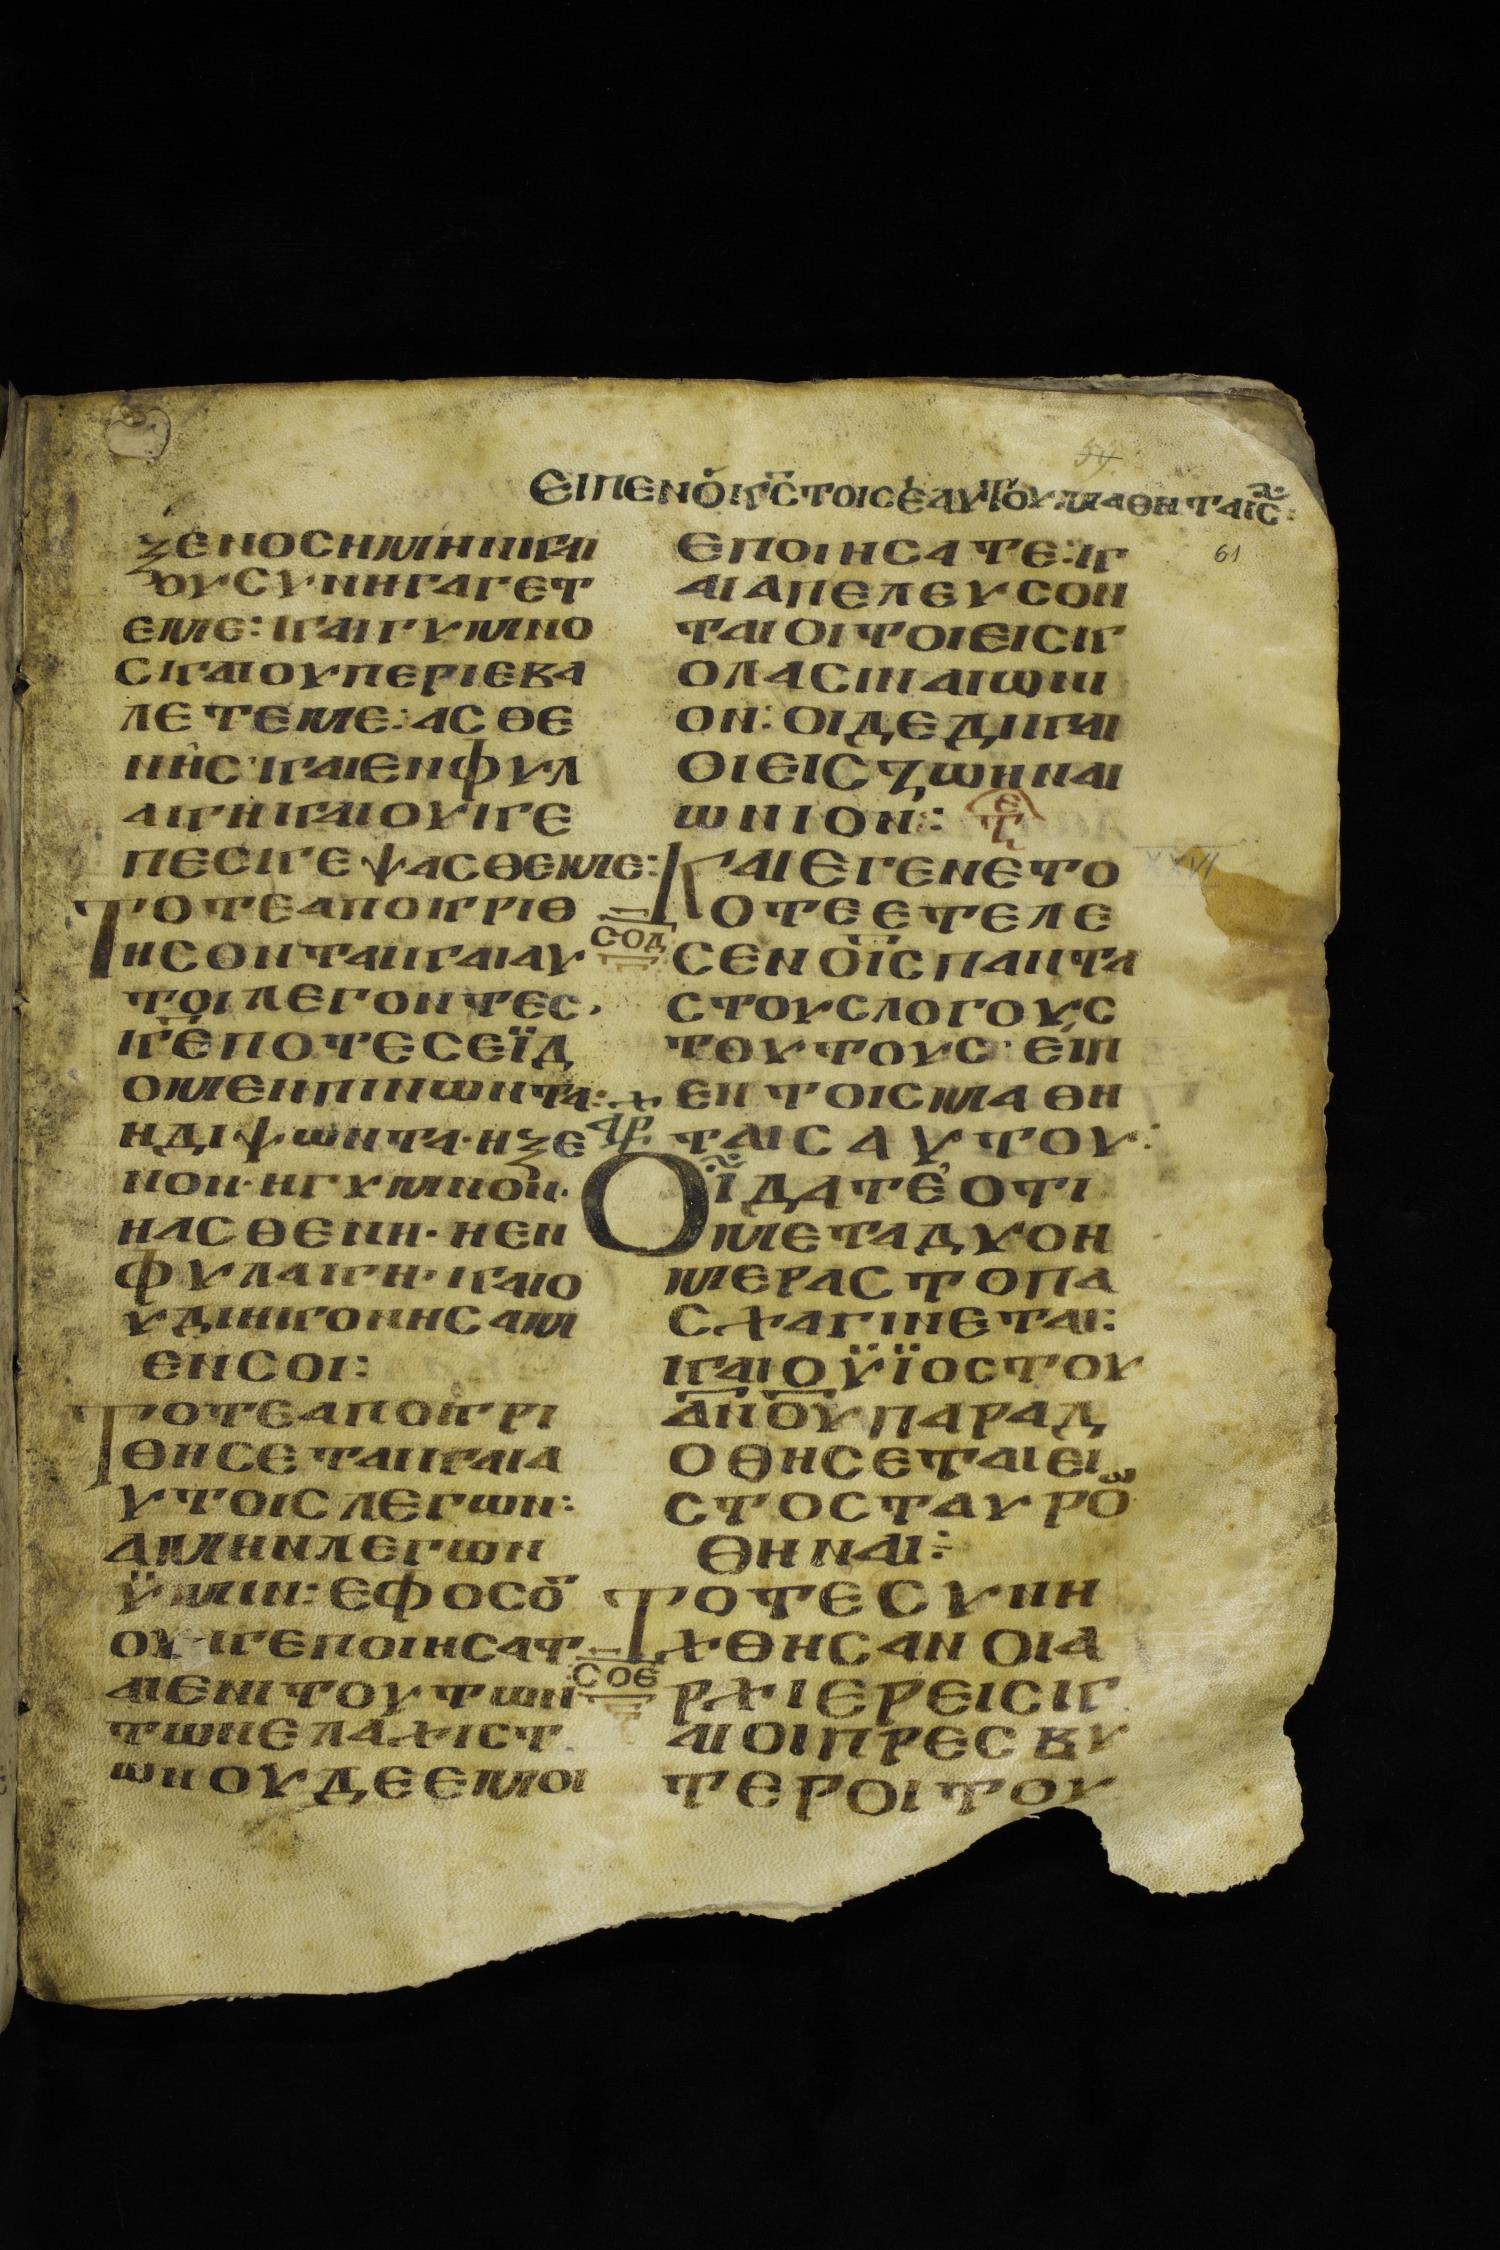 ΕΙΠΕΝΟΚ̅Σ̅ΤΟΙΣΕΑΥΤΟΥΜΑΘΗΤΑΙΣ:
54
61
ΞΕΝΟΣΗΜΗΝΚΑΙ
ΟΥΣΥΝΗΓΑΓΕΤ
ΕΜΕ: ΚΑΙΓΥΜΝΟ
ΣΚΑΙΟΥΠΕΡΙΕΒΑ
ΛΕΤΕΜΕ: ΑΣΘΕ
ΝΗΣ·ΚΑΙΕΝΦΥΛ
ΑΚΗΚΑΙΟΥΚΕ
ΠΕΣΚΕΨΑΣΘΕΜΕ:
ΤΟΤΕΑΠΟΚΡΙΘ
ΗΣΟΝΤΑΙΚΑΙΑΥ
ΤΟΙΛΕΓΟΝΤΕΣ·
Κ̅Ε̅ΠΟΤΕΣΕΪΔ
ΟΜΕΝΠΙΝΩΝΤΑ:
ΗΔΙΨΩΝΤΑ·ΗΞΕ
ΝΟΝ·ΗΓΥΜΝΟΝ·
ΗΑΣΘΕΝΗ·ΗΕΝ
ΦΥΛΑΚΗ·ΚΑΙΟ
ΥΔΙΗΚΟΝΗΣΑΜ
ΕΝΣΟΙ:
ΤΟΤΕΑΠΟΚΡΙ
ΘΗΣΕΤΑΙΚΑΙΑ
ΥΤΟΙΣΛΕΓΩΝ:
ΑΜΗΝΛΕΓΩΗ
ΫΜΙΝ: ΕΦΟΣΟ
ΟΥΚΕΠΟΙΗΣΑΤ
ΑΙΕΝΙΤΟΥΤΩΝ
ΤΩΝΕΛΑΧΙΣΤ
ΩΝΟΥΔΕΕΜΟΙ
ΕΠΟΙΗΣΑΤΕ:Κ
ΑΙΑΠΕΛΕΥΣΟΝ
ΤΑΙΟΙΤΟΙΕΙΣΚ
ΟΛΑΣΙΝΑΙΩΝΙ
ΟΝ: ΟΙΔΕΔΙΚΑΙ
ΟΙΕΙΣΖΩΗΝΑΙ
ΩΝΙΟΝ:
Ε
Τ
XXVI
ΚΑΙΕΓΕΝΕΤΟ
ΟΤΕΕΤΕΛΕ
ΣΟΔ
ΣΕΝΟΪ̅Σ̅ΠΑΝΤΑ
ΣΤΟΥΣΛΟΓΟΥΣ
ΤΟΥΤΟΥΣ·ΕΙΠ
ΕΝΤΟΙΣΜΑΘΗ
ΤΑΙΣΑΥΤΟΥ:
ΑΡΧ
ΟΪΔΑΤΕΟΤΙ
ΜΕΤΑΔΥΟΗ
ΜΕΡΑΣΤΟΠΑ
ΣΧΑΓΙΝΕΤΑΙ:
ΚΑΙΟΫΪΟΣΤΟΥ
Α̅Ν̅Ο̅Υ̅ΠΑΡΑΔ
ΟΘΗΣΕΤΑΙΕΙ
ΣΤΟΣΤΑΥΡΟω
ΘΗΝΑΙ:
ΤΟΤΕΣΥΝΗ
ΧΘΗΣΑΝΟΙΑ
ΣΟΕ
ΡΧΙΕΡΕΙΣΚ
ΑΙΟΙΠΡΕΣΒΥ
ΤΕΡΟΙΤΟΥ